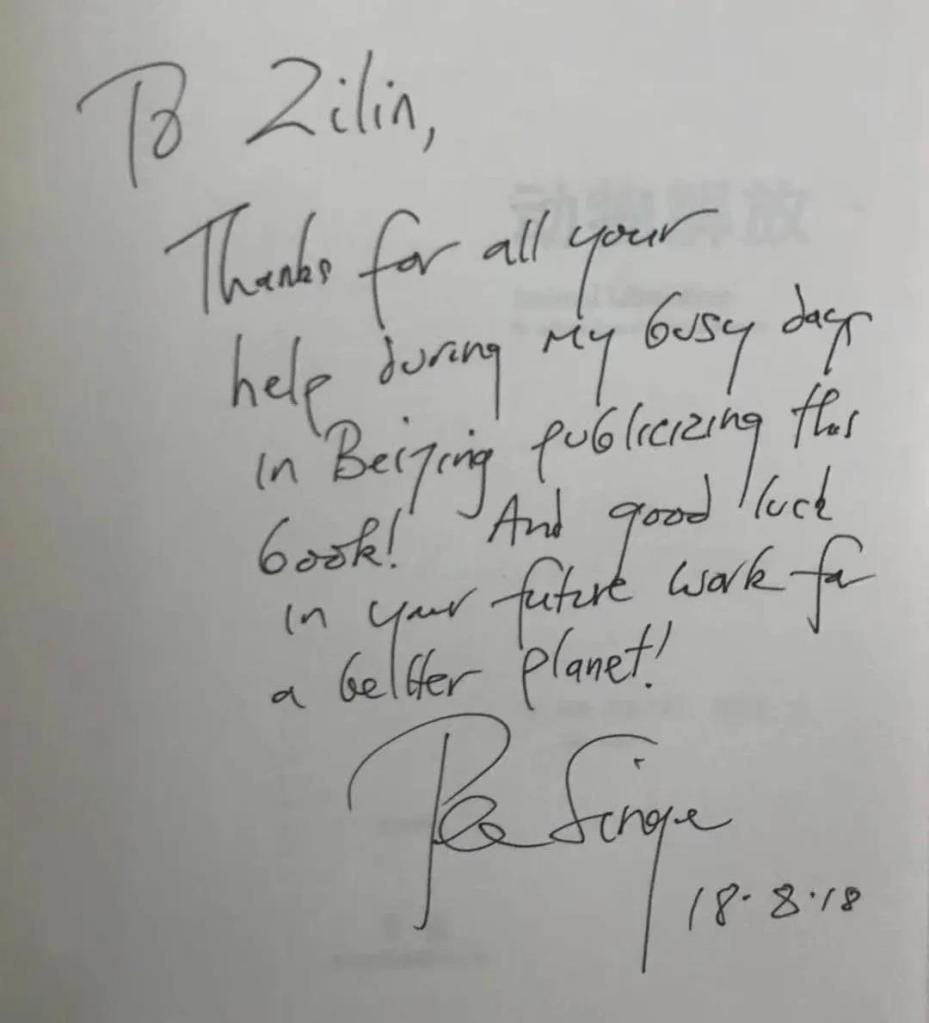 To Zilin,
Thanks for all your
help during my busy days
in Beijing publicizing this
book! And good luck
in your future work for
a better planet!
Peter Singer
18.8.18
动物解放